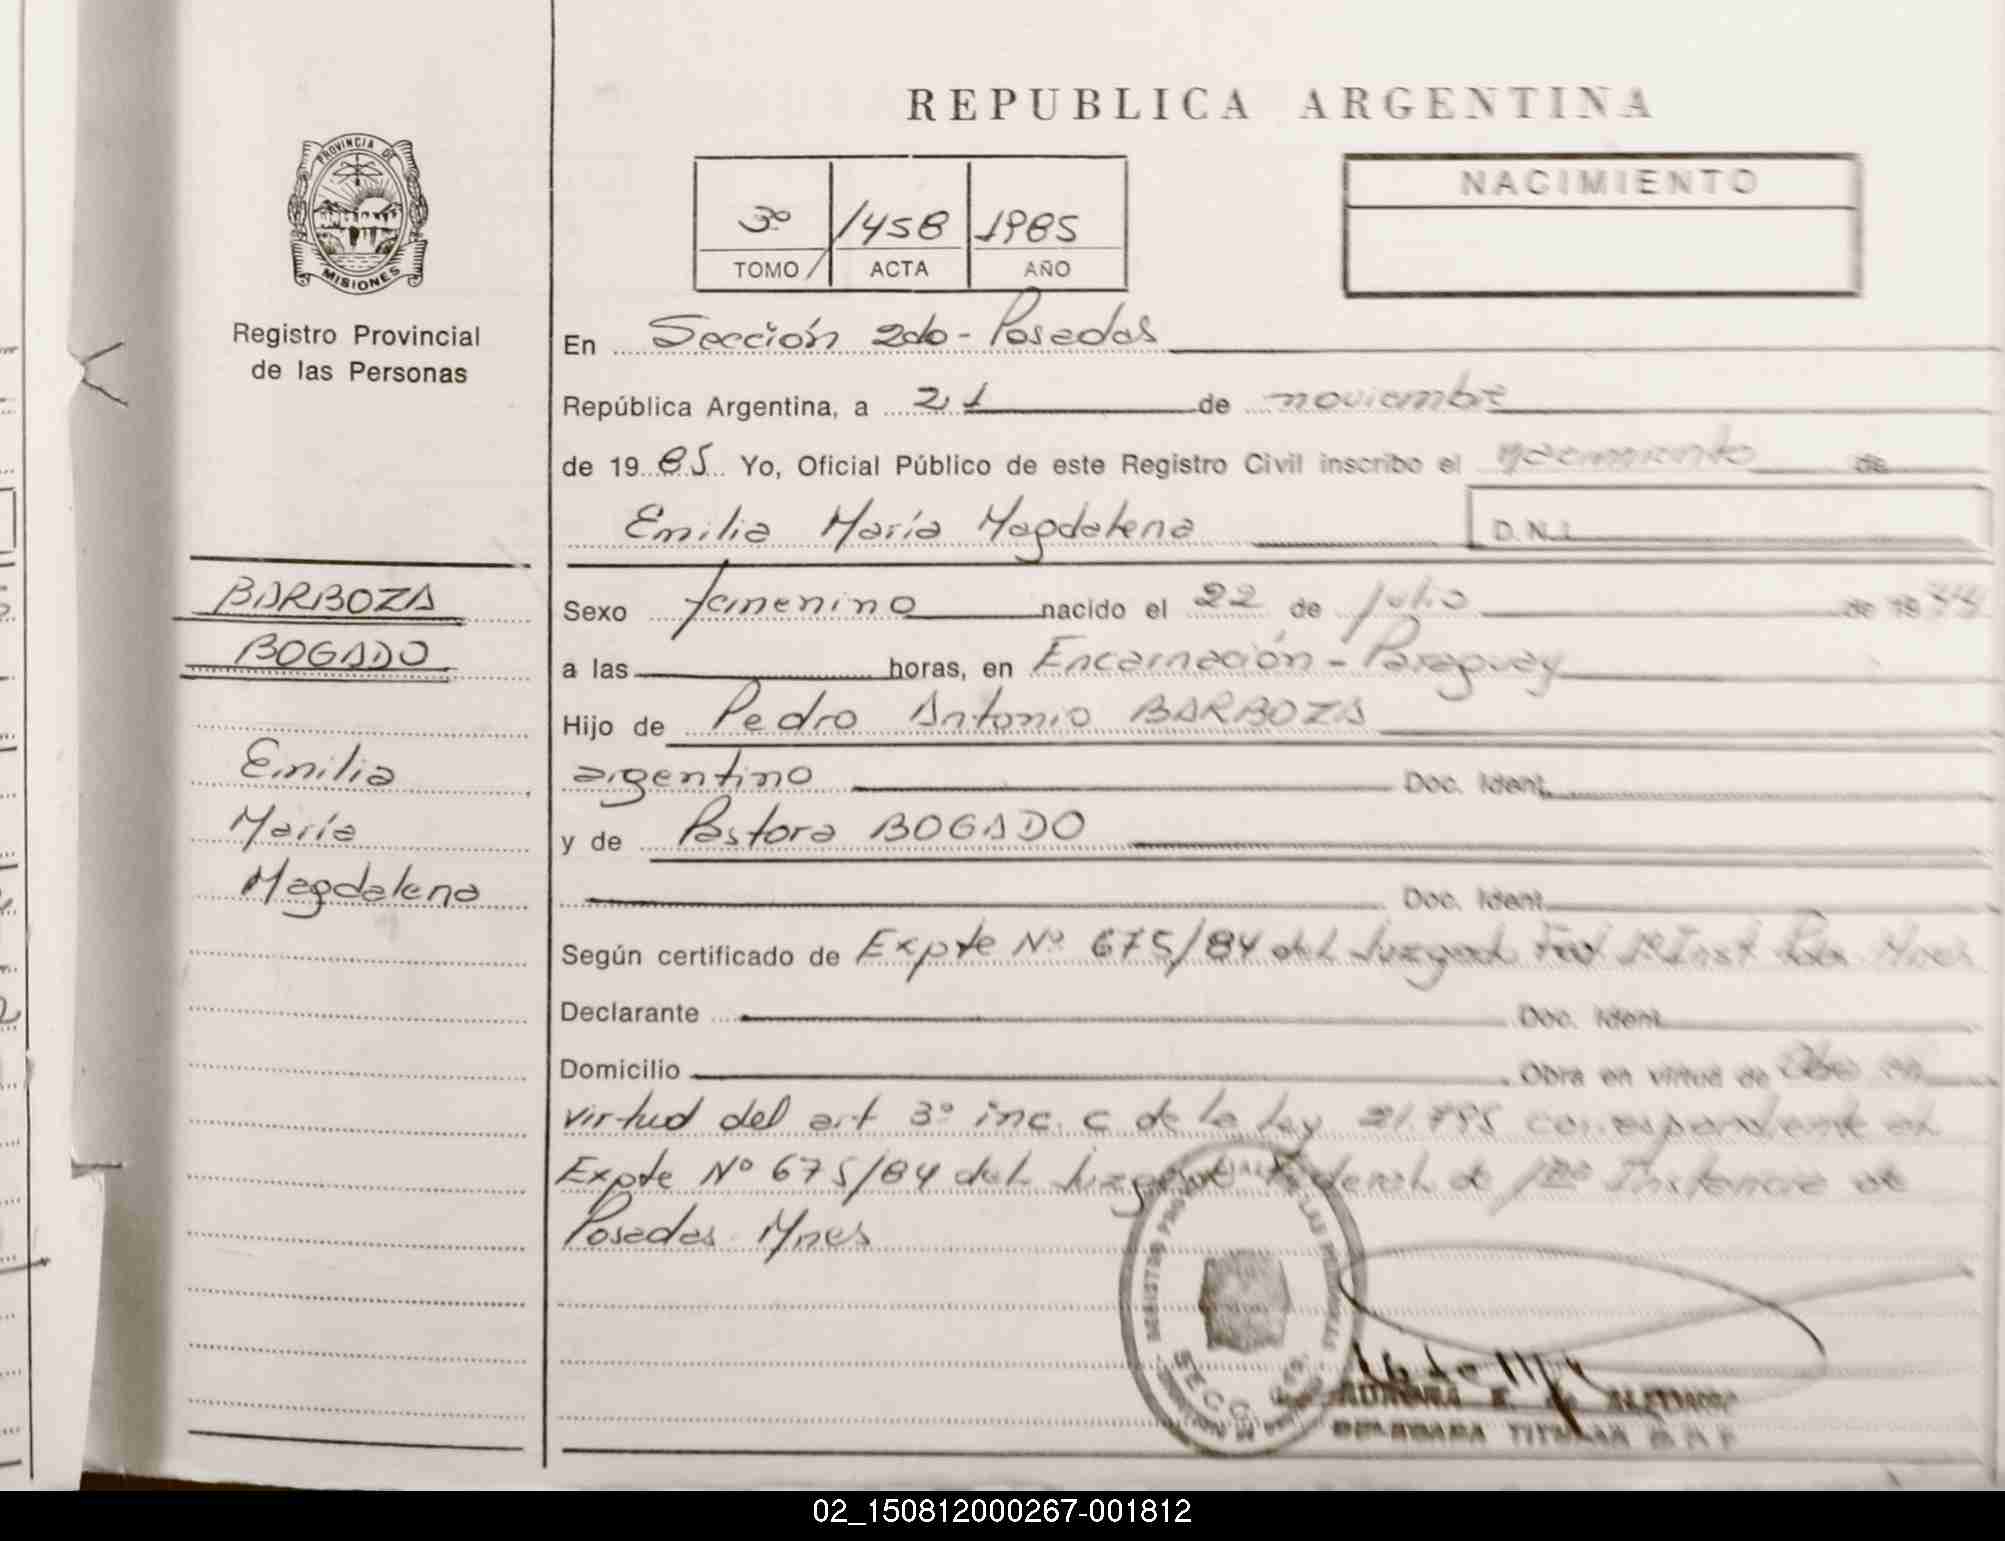 REPUBLICA ARGENTINA
PROVINCIA DE
MISIONES
Registro Provincial
de las Personas
3º 1458 1985
TOMO ACTA AÑO
NACIMIENTO
En Sección 2do - Posadas
República Argentina, a 21 de noviembre
de 19 85 Yo, Oficial Público de este Registro Civil inscribo el nacimiento de
Emilia María Magdalena D.N.I.
BARBOZA
BOGADO
Emilia
María
Magdalena
Sexo femenino nacido el 22 de julio de 19
a las horas, en Encarnación - Paraguay
Hijo de Pedro Antonio BARBOZA
argentino Doc. Ident.
y de Pastora BOGADO
Doc. Ident.
Según certificado de Expte Nº 675/84 del Juzgado Fed
Declarante Doc. Ident.
Domicilio Obra en virtud de
virtud del art 3º inc. c de la Ley 21.795 correspondiente al
Expte Nº 675/84 del Juzgado Federal de 1ra Instancia de
Posadas Mnes
TITULAR
02_150812000267-001812